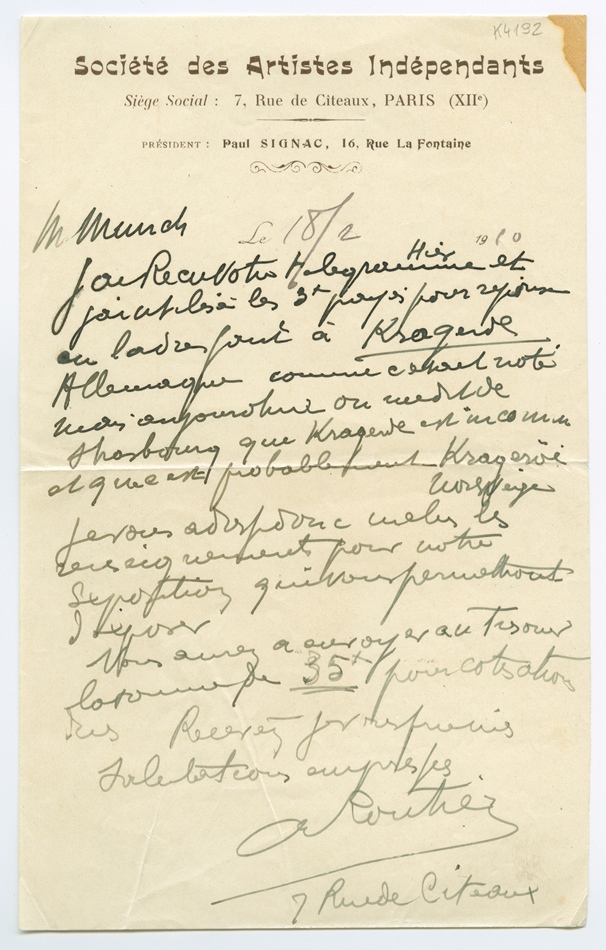 K4192
Société des Artistes Indépendants
Siège Social : 7, Rue de Citeaux, PARIS (XIIe)
PRÉSIDENT : Paul SIGNAC, 16, Rue La Fontaine
M Munch
Le 18/2 1910
J'ai Recu Votre telegramme Hier et
j'ai utilisé les 3f payés pour reponse
en l'adressant à Kragerde
Allemagne comme c'etait noté
mais aujourdhui on me dit de
Strasbourg que Kragerde est inconnu
et que c'est probablement Krageröe
Norvege
Je vous adresse donc les
renseignements pour notre
Exposition qui vous permettront
d'exposer
Vous aurez a envoyer au Tresorier
la somme de 35f pour cotisation
Recevez je vous prie mes
Salutations empressées
Routier
7 Rue de Citeaux